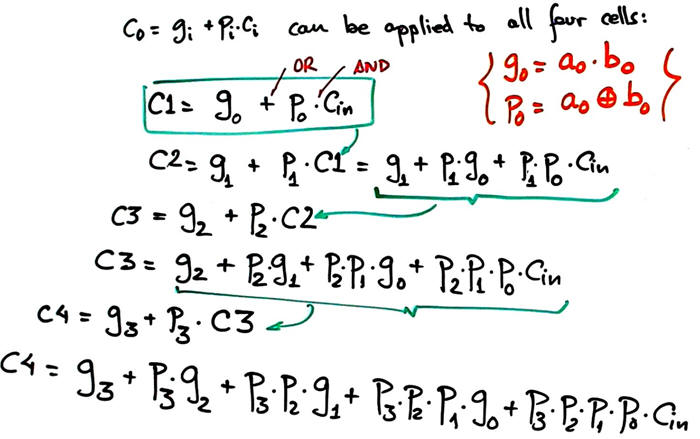 C₀ = gᵢ + Pᵢ·Cᵢ can be applied to all four cells:
OR AND
C1 = g₀ + P₀·Cin
g₀ = a₀·b₀
P₀ = a₀ ⊕ b₀
C2 = g₁ + P₁·C1 = g₁ + P₁·g₀ + P₁·P₀·Cin
C3 = g₂ + P₂·C2
C3 = g₂ + P₂·g₁ + P₂·P₁·g₀ + P₂·P₁·P₀·Cin
C4 = g₃ + P₃·C3
C4 = g₃ + P₃·g₂ + P₃·P₂·g₁ + P₃·P₂·P₁·g₀ + P₃·P₂·P₁·P₀·Cin